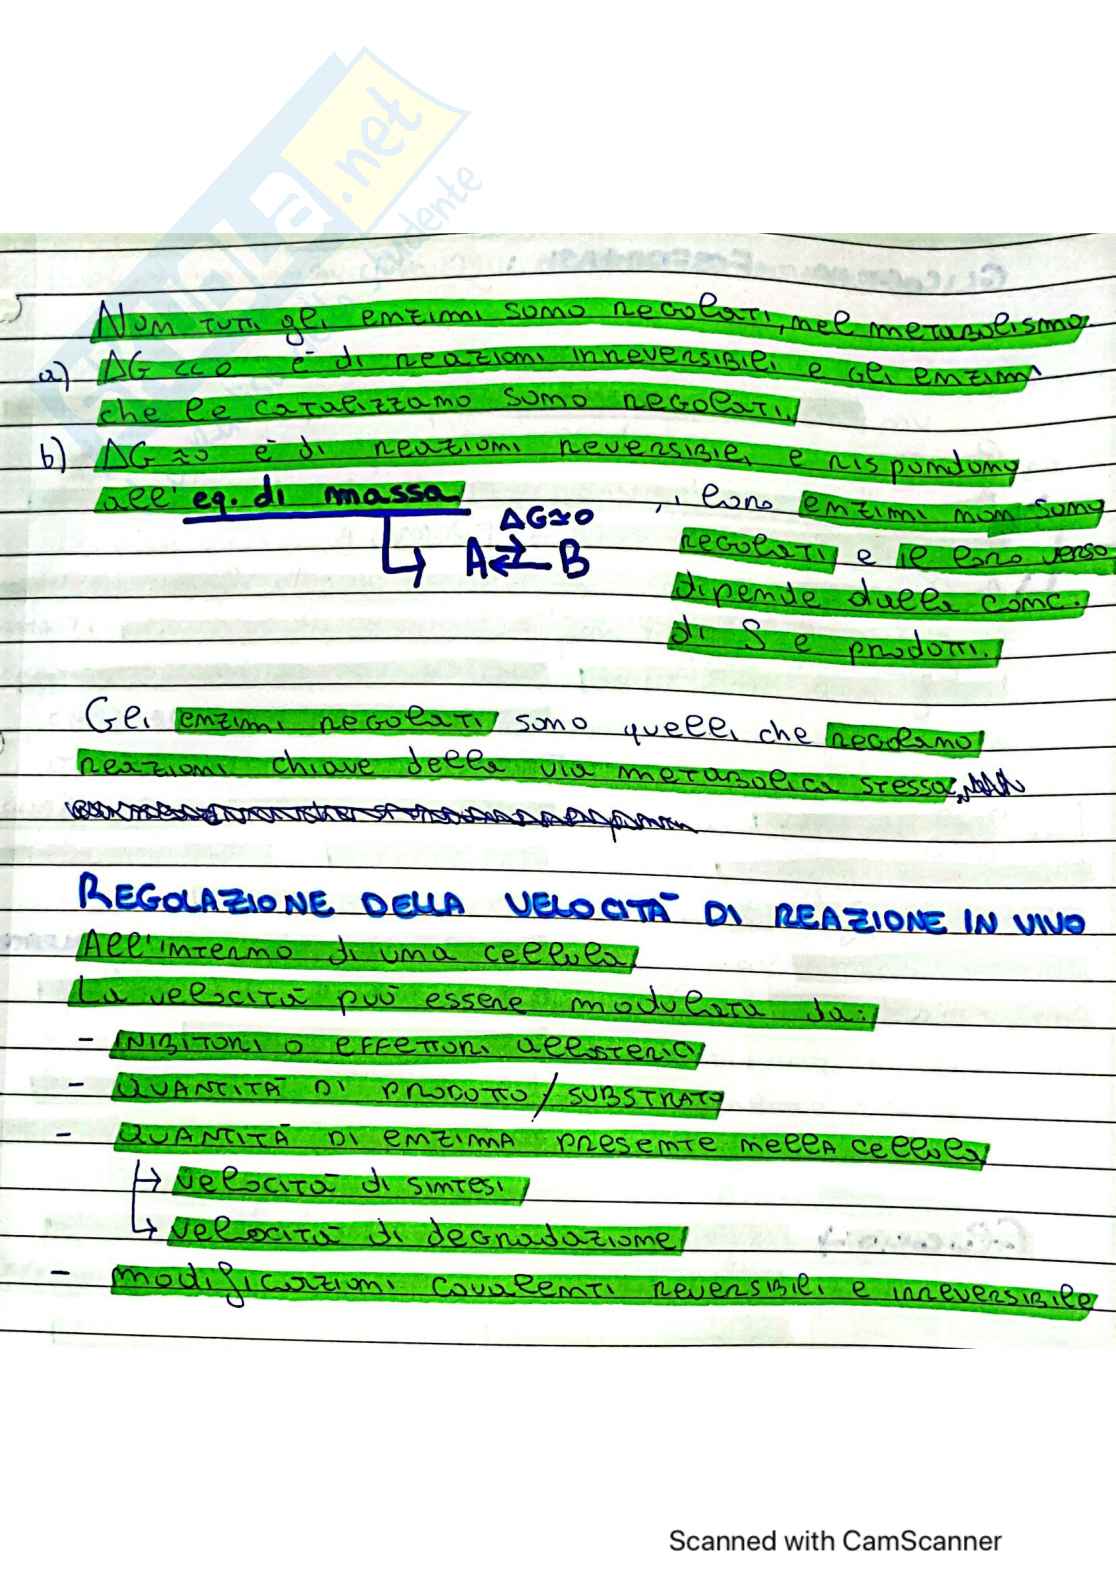 Non tutti gli enzimi sono regolati, nel metabolismo
a) ΔG <<0 è di reazioni irreversibili e gli enzimi
che le catalizzano sono regolati.
b) ΔG ≈0 è di reazioni reversibili e rispondono
all'eq. di massa, loro enzimi non sono
regolati e il loro verso
dipende dalla conc.
di S e prodotti.
ΔG≃0
A ⇄ B
Gli enzimi regolati sono quelli che regolano
reazioni chiave della via metabolica stessa,
REGOLAZIONE DELLA VELOCITÀ DI REAZIONE IN VIVO
All'interno di una cellula
La velocità può essere modulata da:
- INIBITORI O EFFETTORI allosterici
- QUANTITÀ DI PRODOTTO/SUBSTRATO
- QUANTITÀ DI ENZIMA presente nella cellula
↳ velocità di sintesi
↳ velocità di degradazione
- modificazioni covalenti reversibili e irreversibile
.net
Scanned with CamScanner